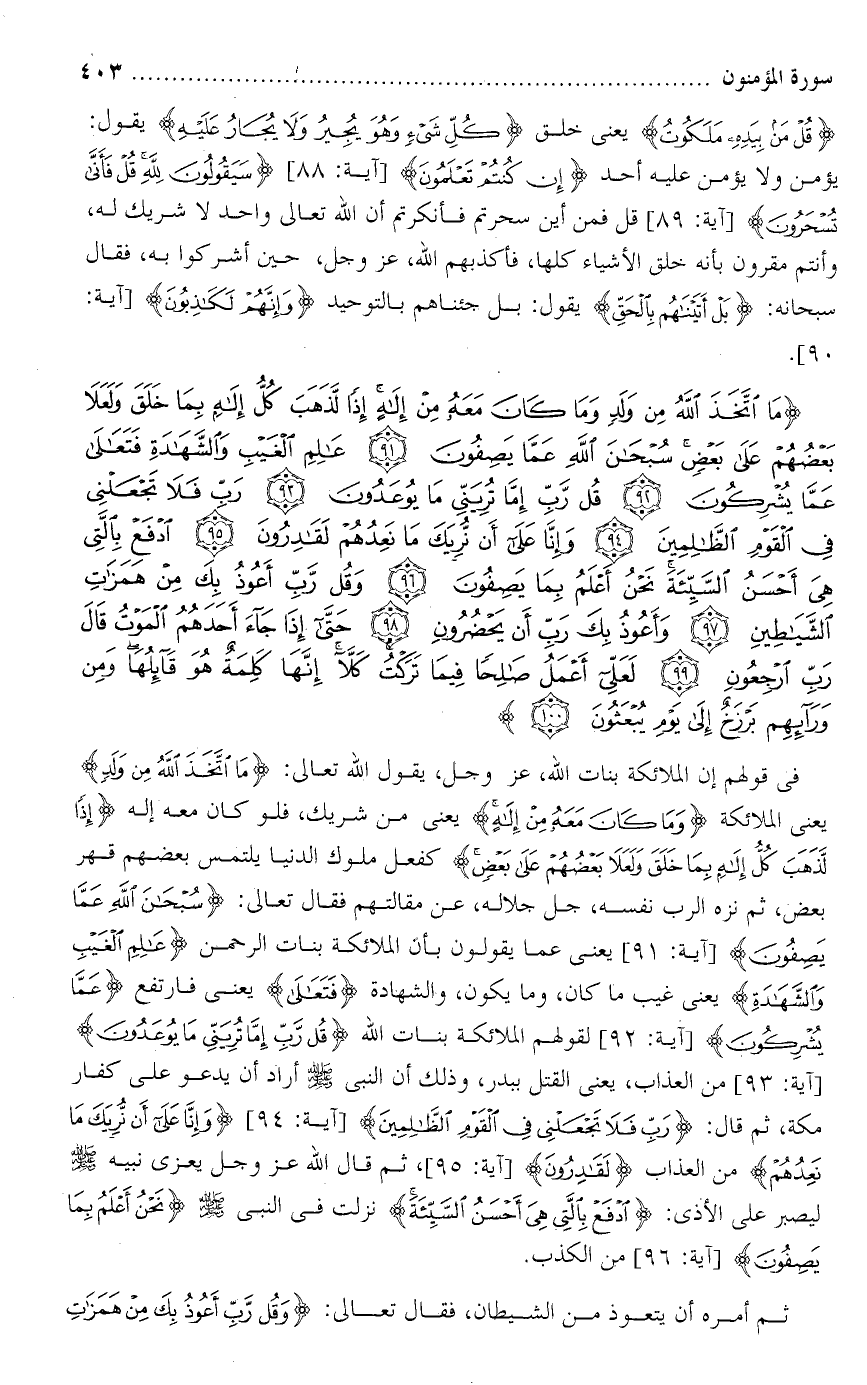 سورة المؤمنون ........................................................................ ٤٠٣
﴿قُلْ مَنْ بِيَدِهِ مَلَكُوتُ﴾ يعنى خلق ﴿كُلِّ شَيْءٍ وَهُوَ يُجِيرُ وَلَا يُجَارُ عَلَيْهِ﴾ يقول:
يؤمن ولا يؤمن عليه أحد ﴿إِن كُنتُمْ تَعْلَمُونَ﴾ [آية: ٨٨] ﴿سَيَقُولُونَ لِلَّهِ قُلْ فَأَنَّى
تُسْحَرُونَ﴾ [آية: ٨٩] قل فمن أين سحرتم فأنكرتم أن الله تعالى واحد لا شريك له،
وأنتم مقرون بأنه خلق الأشياء كلها، فأكذبهم الله، عز وجل، حين أشركوا به، فقال
سبحانه: ﴿بَلْ أَتَيْنَاهُم بِالْحَقِّ﴾ يقول: بل جئناهم بالتوحيد ﴿وَإِنَّهُمْ لَكَاذِبُونَ﴾ [آية:
٩٠].
﴿مَا اتَّخَذَ اللَّهُ مِن وَلَدٍ وَمَا كَانَ مَعَهُ مِنْ إِلَهٍ إِذًا لَّذَهَبَ كُلُّ إِلَهٍ بِمَا خَلَقَ وَلَعَلَا
بَعْضُهُمْ عَلَى بَعْضٍ سُبْحَانَ اللَّهِ عَمَّا يَصِفُونَ ٩١ عَالِمِ الْغَيْبِ وَالشَّهَادَةِ فَتَعَالَى
عَمَّا يُشْرِكُونَ ٩٢ قُل رَّبِّ إِمَّا تُرِيَنِّي مَا يُوعَدُونَ ٩٣ رَبِّ فَلَا تَجْعَلْنِي
فِي الْقَوْمِ الظَّالِمِينَ ٩٤ وَإِنَّا عَلَى أَن نُّرِيَكَ مَا نَعِدُهُمْ لَقَادِرُونَ ٩٥ ادْفَعْ بِالَّتِي
هِيَ أَحْسَنُ السَّيِّئَةَ نَحْنُ أَعْلَمُ بِمَا يَصِفُونَ ٩٦ وَقُل رَّبِّ أَعُوذُ بِكَ مِنْ هَمَزَاتِ
الشَّيَاطِينِ ٩٧ وَأَعُوذُ بِكَ رَبِّ أَن يَحْضُرُونِ ٩٨ حَتَّى إِذَا جَاءَ أَحَدَهُمُ الْمَوْتُ قَالَ
رَبِّ ارْجِعُونِ ٩٩ لَعَلِّي أَعْمَلُ صَالِحًا فِيمَا تَرَكْتُ كَلَّا إِنَّهَا كَلِمَةٌ هُوَ قَائِلُهَا وَمِن
وَرَائِهِم بَرْزَخٌ إِلَى يَوْمِ يُبْعَثُونَ ١٠٠﴾
فى قولهم إن الملائكة بنات الله، عز وجل، يقول الله تعالى: ﴿مَا اتَّخَذَ اللَّهُ مِن وَلَدٍ﴾
يعنى الملائكة ﴿وَمَا كَانَ مَعَهُ مِنْ إِلَهٍ﴾ يعنى من شريك، فلو كان معه إله ﴿إِذًا
لَّذَهَبَ كُلُّ إِلَهٍ بِمَا خَلَقَ وَلَعَلَا بَعْضُهُمْ عَلَى بَعْضٍ﴾ كفعل ملوك الدنيا يلتمس بعضهم قهر
بعض، ثم نزه الرب نفسه، جل جلاله، عن مقالتهم فقال تعالى: ﴿سُبْحَانَ اللَّهِ عَمَّا
يَصِفُونَ﴾ [آية: ٩١] يعنى عما يقولون بأن الملائكة بنات الرحمن ﴿عَالِمِ الْغَيْبِ
وَالشَّهَادَةِ﴾ يعنى غيب ما كان، وما يكون، والشهادة ﴿فَتَعَالَى﴾ يعنى فارتفع ﴿عَمَّا
يُشْرِكُونَ﴾ [آية: ٩٢] لقولهم الملائكة بنات الله ﴿قُل رَّبِّ إِمَّا تُرِيَنِّي مَا يُوعَدُونَ﴾
[آية: ٩٣] من العذاب، يعنى القتل ببدر، وذلك أن النبى ﷺ أراد أن يدعو على كفار
مكة، ثم قال: ﴿رَبِّ فَلَا تَجْعَلْنِي فِي الْقَوْمِ الظَّالِمِينَ﴾ [آية: ٩٤] ﴿وَإِنَّا عَلَى أَن نُّرِيَكَ مَا
نَعِدُهُمْ﴾ من العذاب ﴿لَقَادِرُونَ﴾ [آية: ٩٥]، ثم قال الله عز وجل يعزى نبيه ﷺ
ليصبر على الأذى: ﴿ادْفَعْ بِالَّتِي هِيَ أَحْسَنُ السَّيِّئَةَ﴾ نزلت فى النبى ﷺ ﴿نَحْنُ أَعْلَمُ بِمَا
يَصِفُونَ﴾ [آية: ٩٦] من الكذب.
ثم أمره أن يتعوذ من الشيطان، فقال تعالى: ﴿وَقُل رَّبِّ أَعُوذُ بِكَ مِنْ هَمَزَاتِ